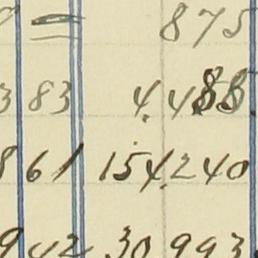 = 875
3 83 4.488
8 61 154.240
9 42 30 993